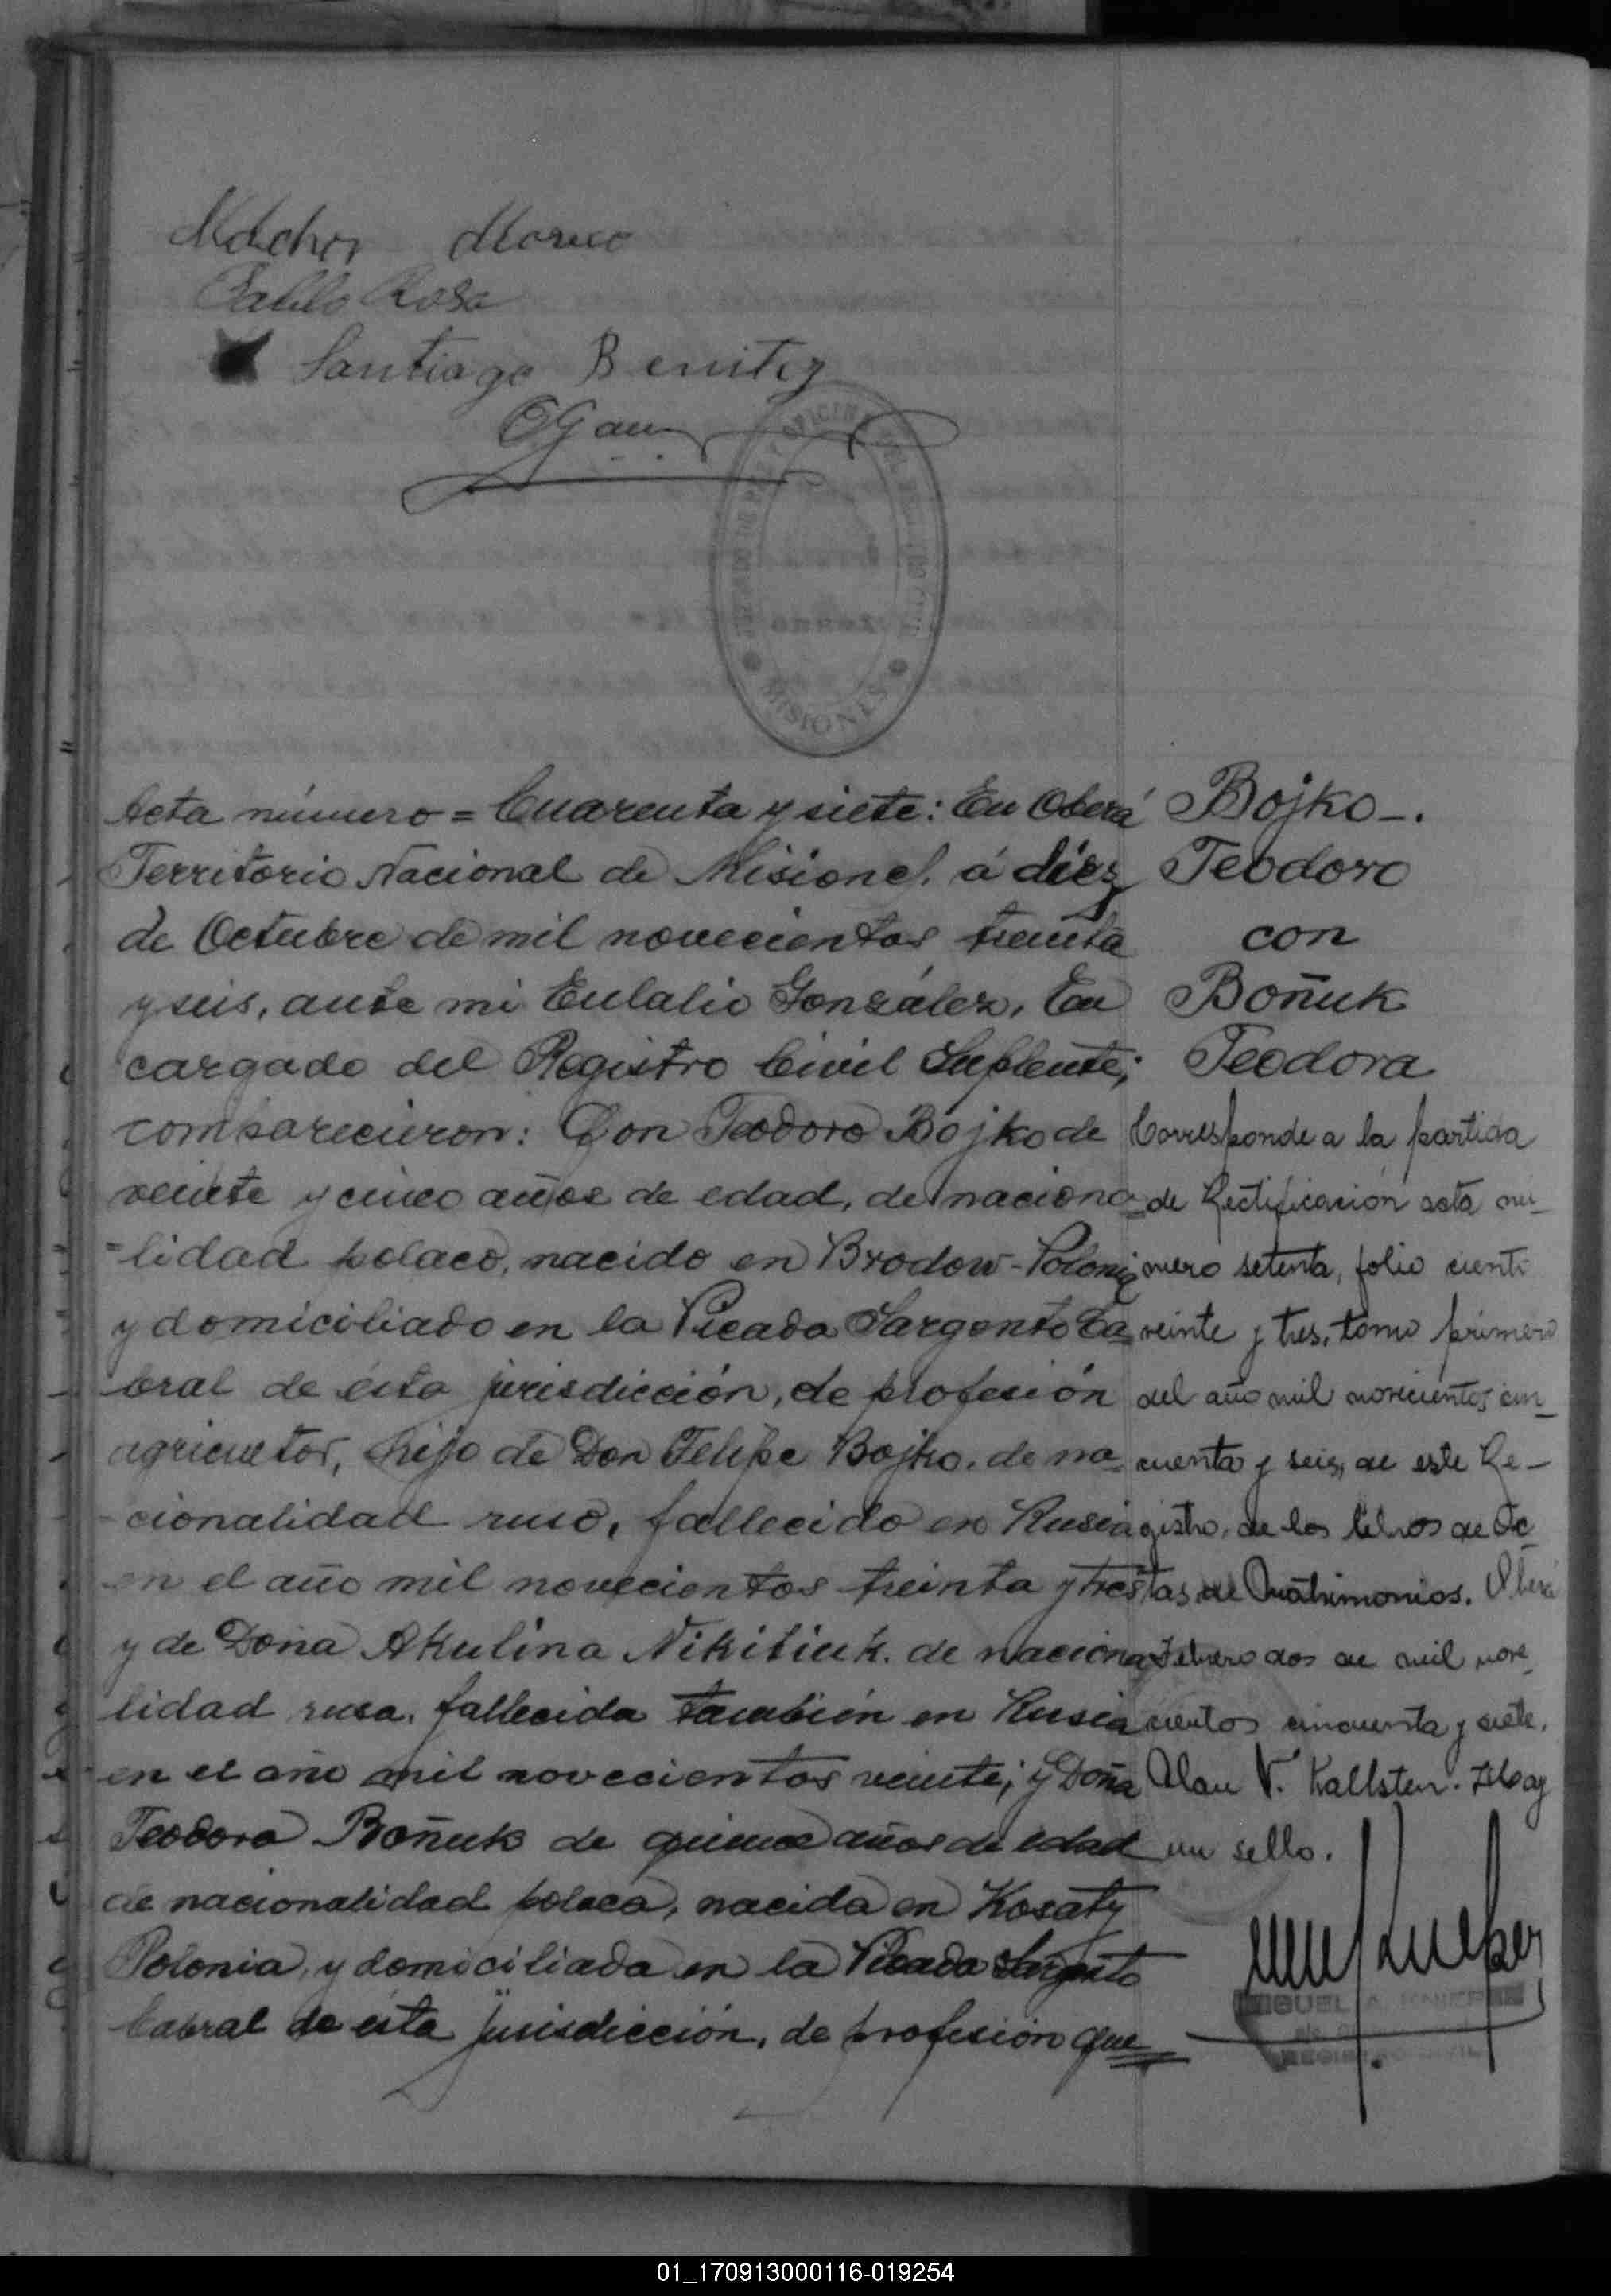 Pablo Rosa
Santiago Benitez
MISIONES
Acta número = Cuarenta y siete: En Oberá
Territorio Nacional de Misiones. á diez
de Octubre de mil novecientos treinta
y seis, ante mi Eulalio González, En
cargado del Registro Civil Suplente;
comparecieron: Don Teodoro Bojko de
veinte y cinco años de edad, de naciona
=lidad polaco, nacido en Brodow-Polonia
y domiciliado en la Picada Sargento Ca
bral de ésta jurisdicción, de profesión
agricultor, hijo de Don Felipe Bojko, de na
-cionalidad ruso, fallecido en Rusia
en el año mil novecientos treinta y tres
y de Doña Akulina Nikitiuk. de naciona
lidad rusa, fallecida también en Rusia
en el año mil novecientos veinte; y Doña
Teodora Boñuk de quince años de edad
de nacionalidad polaca, nacida en Kosaty
Polonia, y domiciliada en la Picada Sargento
Cabral de ésta jurisdicción, de profesión que
Bojko-.
Teodoro
con
Boñuk
Teodora
Corresponde a la partida
de Rectificación acta nú_
mero setenta, folio ciento
veinte y tres, tomo primero
del año mil novecientos cin_
cuenta y seis, de este Re-
gistro, de los libros de Ac
tas de Matrimonios. Oberá
Febrero dos de mil nove_
cientos cincuenta y siete.
Alan V. Kallsten. Hay
un sello.
MIGUEL A.
REGISTRO CIVIL
01_170913000116-019254